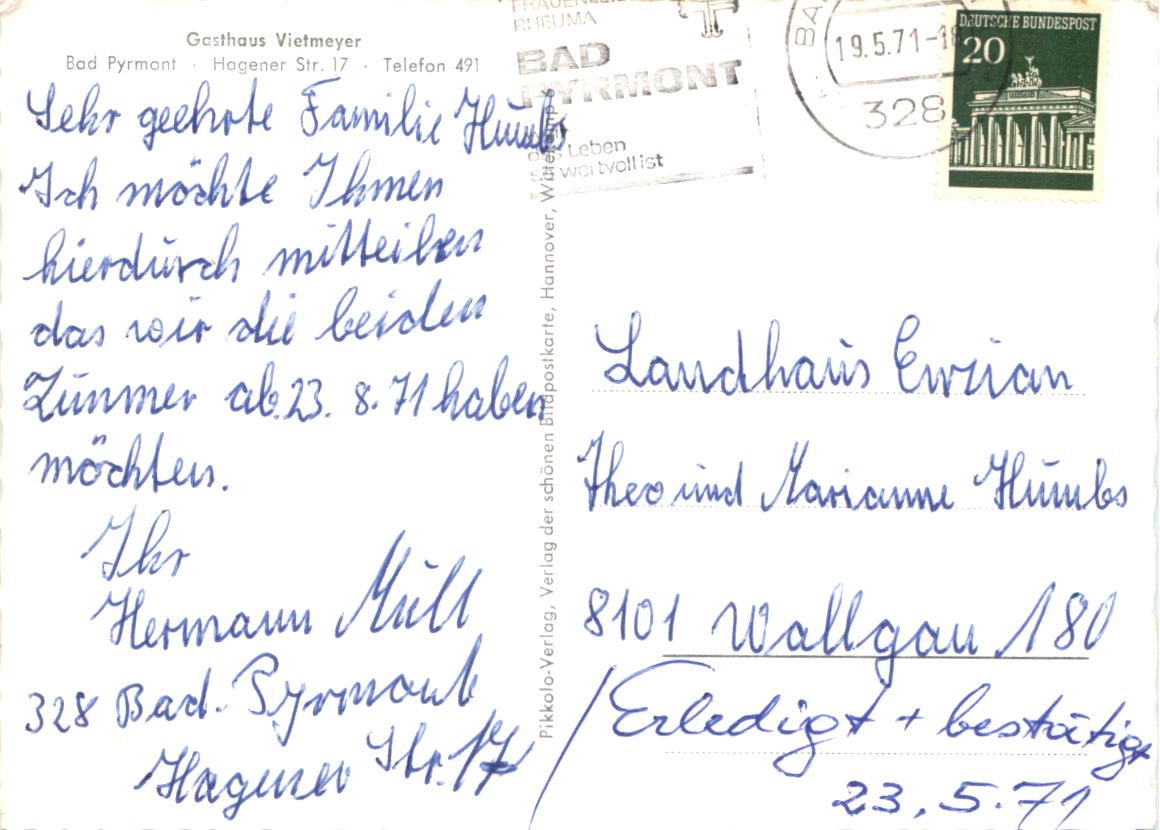 Gasthaus Vietmeyer
Bad Pyrmont · Hagener Str. 17 · Telefon 491
Sehr geehrte Familie Humbs
Ich möchte Ihnen
hierdurch mitteilen
das wir die beiden
Zimmer ab. 23. 8. 71 haben
möchten.
Ihr
Hermann Müll
328 Bad. Pyrmont
Hagener Str. 17
Pikkolo-Verlag, Verlag der schönen Bildpostkarte, Hannover,
RHEUMA
BAD
PYRMONT
das Leben
wertvoll ist
19.5.71-18
328
DEUTSCHE BUNDESPOST
20
Landhaus Enzian
Theo und Marianne Humbs
8101 Wallgau 180
Erledigt + bestätigt
23.5.71